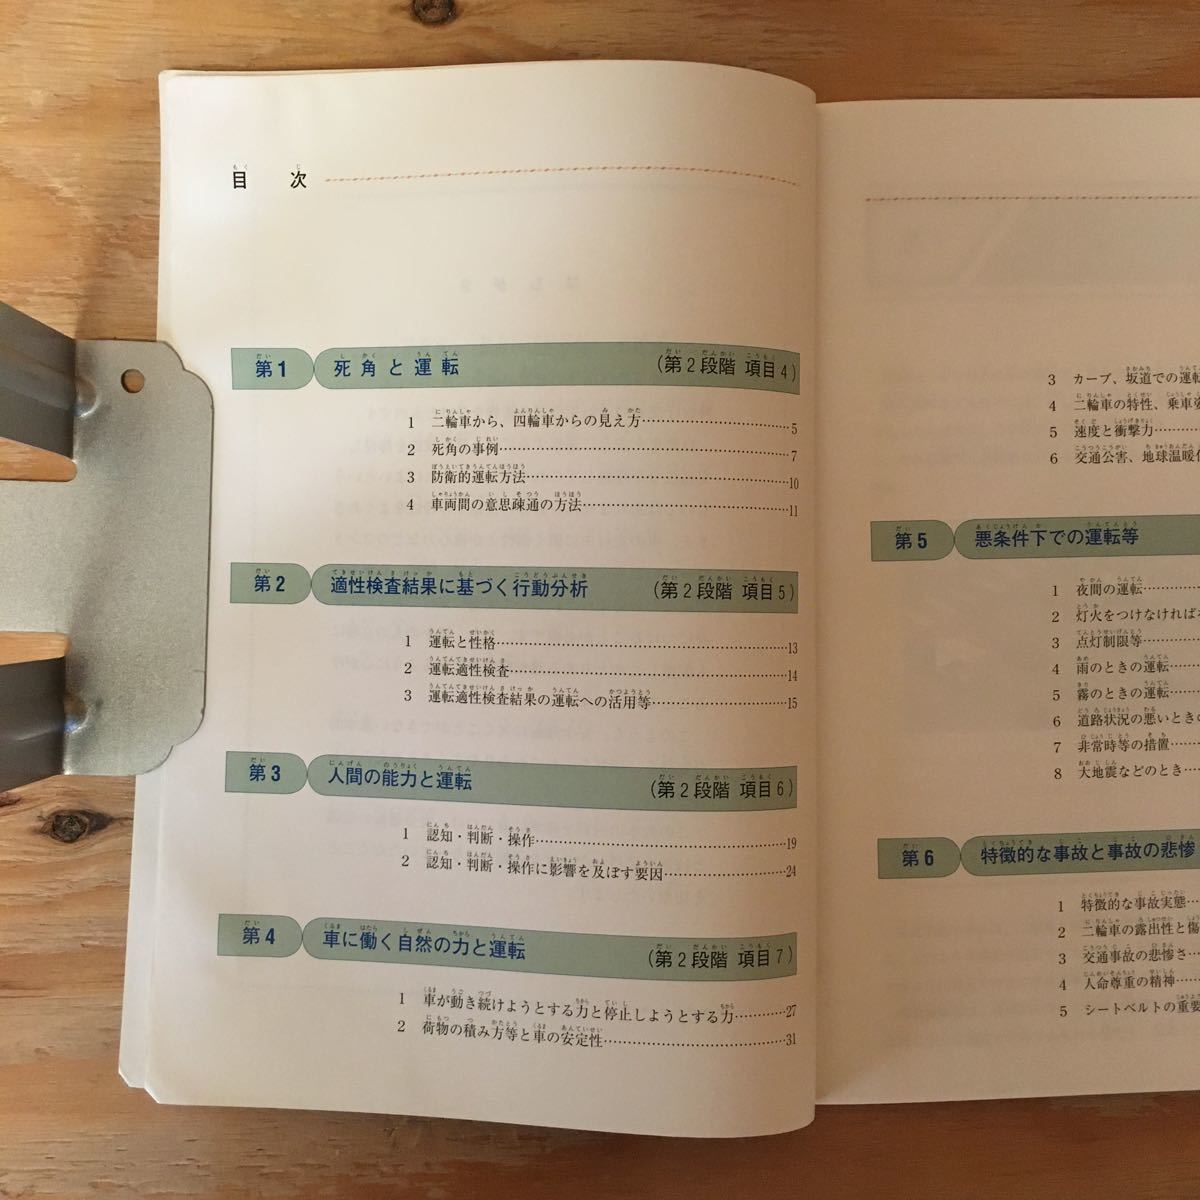 目次
第1 死角と運転 (第2段階 項目4)
1 二輪車から、四輪車からの見え方 5
2 死角の事例 7
3 防衛的運転方法 10
4 車両間の意思疎通の方法 11
第2 適性検査結果に基づく行動分析 (第2段階 項目5)
1 運転と性格 13
2 運転適性検査 14
3 運転適性検査結果の運転への活用等 15
第3 人間の能力と運転 (第2段階 項目6)
1 認知・判断・操作 19
2 認知・判断・操作に影響を及ぼす要因 24
第4 車に働く自然の力と運転 (第2段階 項目7)
1 車が動き続けようとする力と停止しようとする力 27
2 荷物の積み方等と車の安定性 31
3 カーブ、坂道での運転
4 二輪車の特性、乗車姿
5 速度と衝撃力
6 交通公害、地球温暖化
第5 悪条件下での運転等
1 夜間の運転
2 灯火をつけなければな
3 点灯制限等
4 雨のときの運転
5 霧のときの運転
6 道路状況の悪いときの
7 非常時等の措置
8 大地震などのとき
第6 特徴的な事故と事故の悲惨
1 特徴的な事故実態
2 二輪車の露出性と傷
3 交通事故の悲惨さ
4 人命尊重の精神
5 シートベルトの重要